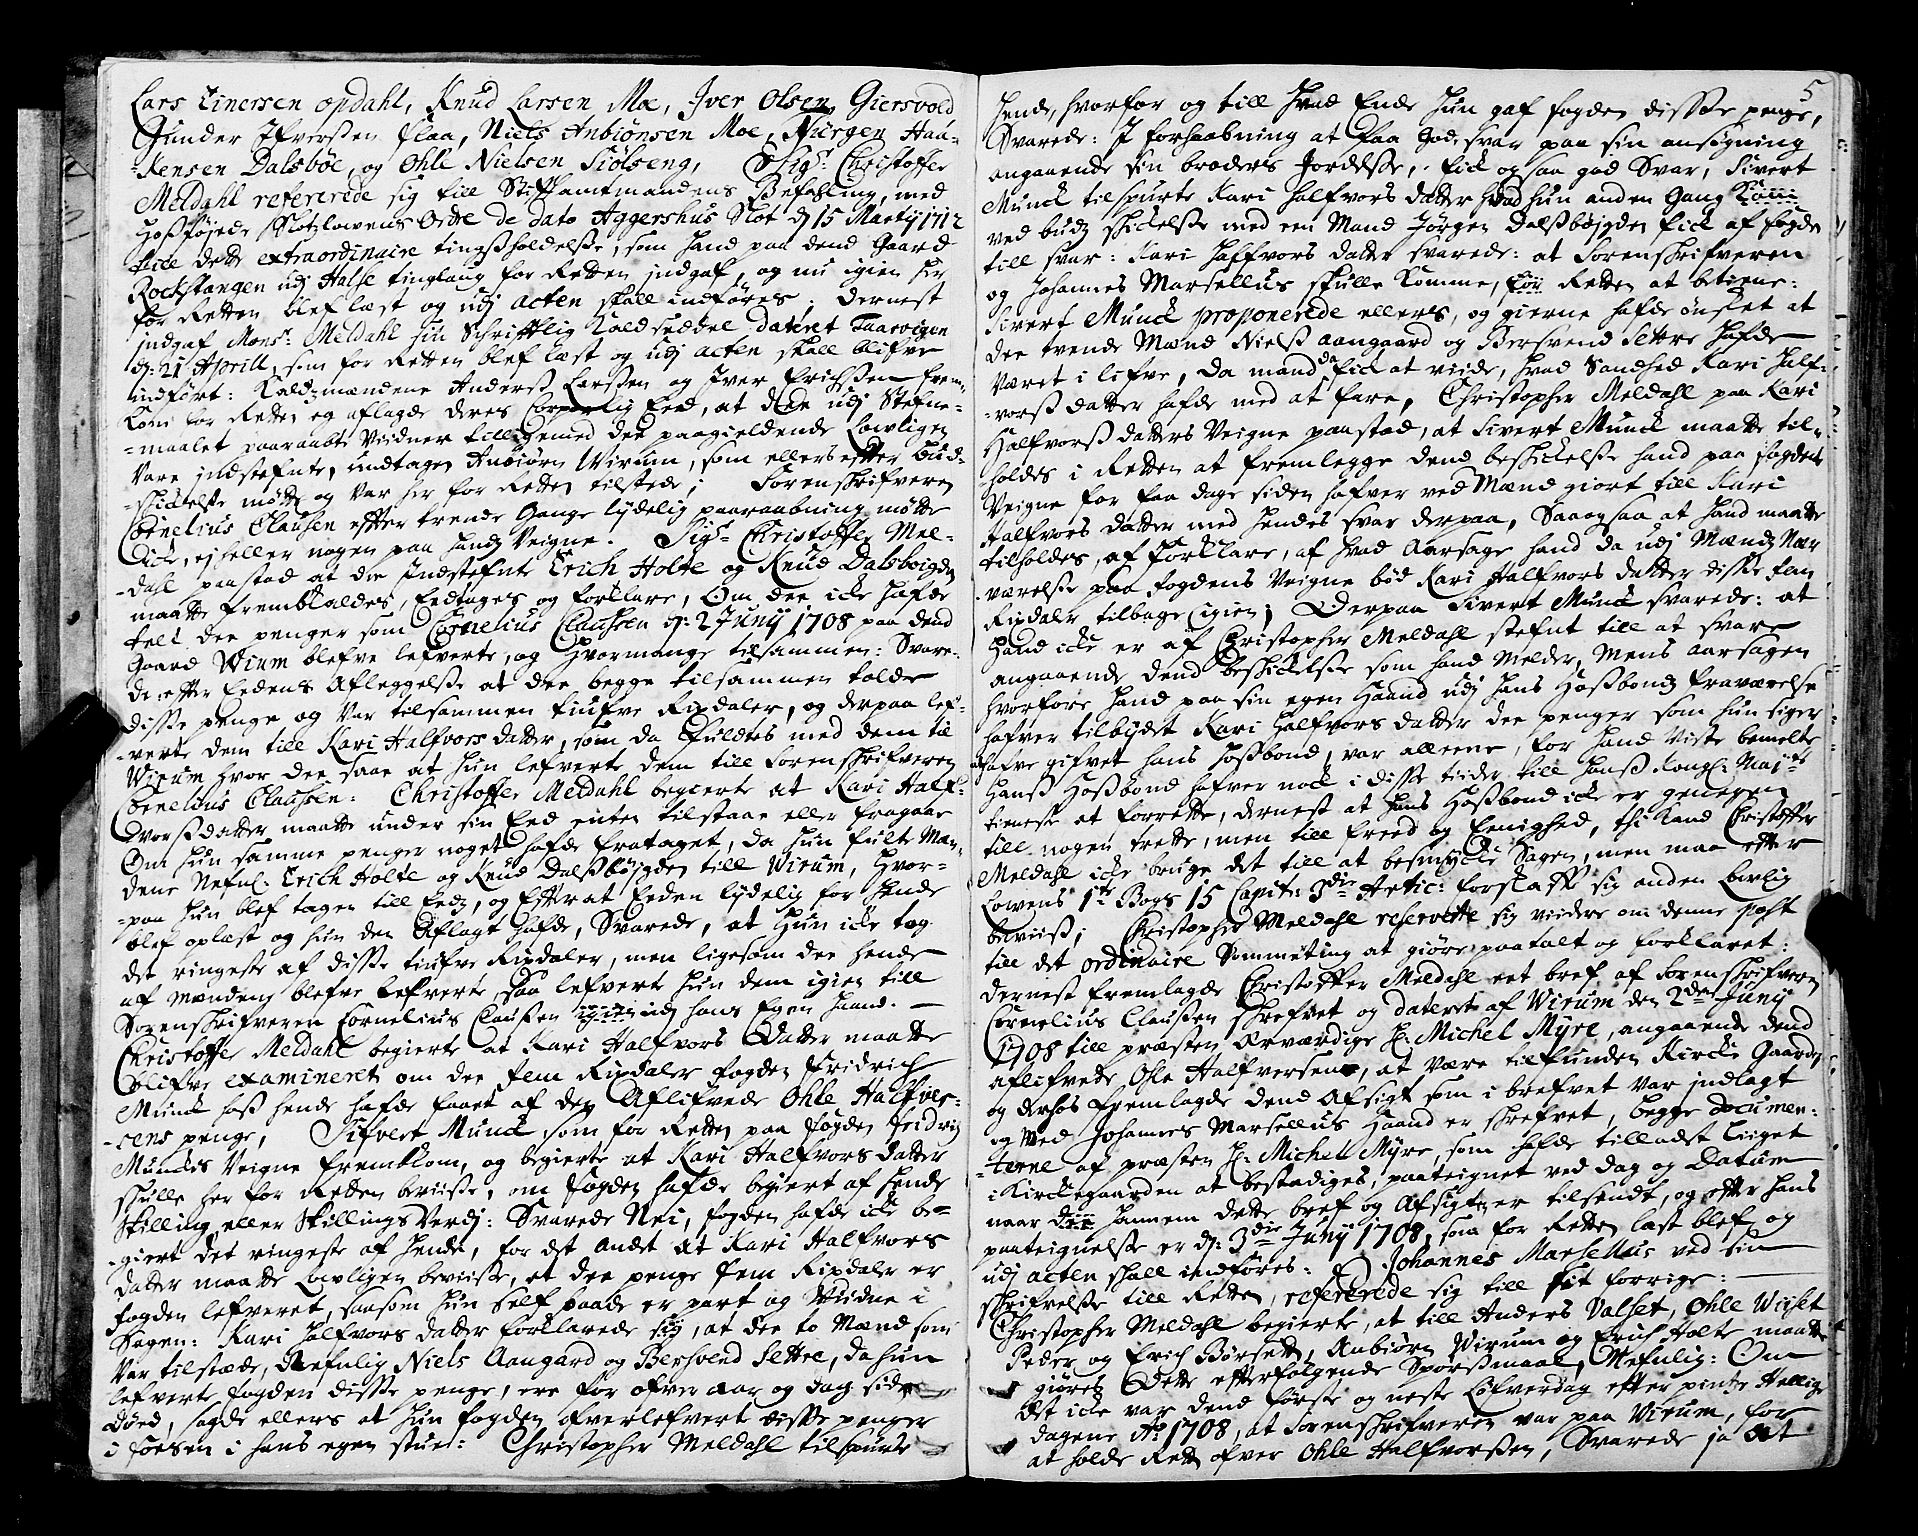 Lars Einersen opdahl, Knud Larsen Moe, Iver Olsen Giersvold
Gunder Ifversen Flaa, Niels Anbiønsen Moe, Jürgen Haa-
-kensen Dalsbøe, og Ohle Nielsen Siølseng, Sigr Christoffer
Meldahl refererede sig till Stiftamtmandens Befahling, med
hosføjede Slotzlowens Ordre de dato Aggershus Slot d 15 Marty 1712
till dette extraordinaire tingsholdelse, som hand paa dend Gaard
Rockstangen udj Halse tinglaug for Retten indgaf, og nu igien her
for Retten blef læst og udj acten skall indføres; Dernest
indgaf Monsr: Meldahl sin Schriftlig Kaldseddel dateret Saarvigen
d: 21 Aprill, som for Retten blef læst og udj acten skall blifve
indført: Kaldzmændene Anderss Larssen og Iver Erichssen frem-
kom for Retten og aflagde deres Corperlig Eed, at dee udj Stefne-
-maalet paaraabte Vidner tilligemed dee paagieldende Lovligen
vare indstefnte, undtagen Anbiørn Wirum, som ellers efter bud-
-skickelse møtte og var her for Retten tilstede; Sorenskrifveren
Cornelius Clausen efter trende Gange lydelig paaraabning møtte
icke, ej heller nogen paa hans Veigne. Sigr Christoffer Mel-
-dahl paastod at dee Indstefnte Erich Holte og Knud Dalsboigden
maatte fremkaldes, Eedtages og forklare, Om dee icke hafde
talt dee penger som Cornelius Claussen d: 2 Juny 1708 paa dend
Gaard Wirum blefve lefverte, og hvormange tilsammen: Svare-
de efter Eedens Afleggelse at dee begge tilsammen talde
disse penge og var tilsammen tiufve Rixdaler, og derpaa lef-
-verte dem till Kari Halfvors datter, som da fuldtes med dem til
Wirum hvor dee saae at hun lefverte dem till Sorenskrifveren
Cornelius Claussen: Christoffer Meldahl begierte at Kari Half-
vorssdatter maatte under sin Eed enten tilstaae eller fragaae
Om hun samme penger noget hafde frataget, da hun fulte Mæn-
dene Nefnl: Erich Holte og Knud Dalssbøjgden till Wirum, hvor-
-paa hun blef tagen till Eedz, og Efterat Eeden lydelig for hende
blef oplæst og hun den Aflagt hafde, Svarede, at Hun icke tog
det ringeste af disse tiufve Rixdaler, men ligesom dee hende
af Mændene blefve lefverte, saa lefverte hun dem igien till
Sorenskrifveren Cornelius Claussen igien udj hans Egen haand.
Christoffer Meldahl begierte at Kari Halfvors Datter maatte
blifve examineret om dee fem Rixdaler fogden Fridrich
Munck hoss hende hafde faaet af den Aflifvede Ohle Halfver-
-sens penge, Sifvert Munck, som for Retten paa Fogden Fridrich
Munckes Veigne fremkom, og begierte at Kari Halfvors datter
skulle her for Retten beviise, om fogden hafde begiert af hende
Skilling eller Skillings Verdj: Svarede Nei, fogden hafde icke be-
-giert det ringeste af hende, for det andet at Kari Halfvors
datter maatte Lovligen beviise, at dee penge fem Rixdaler er
fogden lefveret, saasom hun self baade er part og Vidne i
Sagen: Kari Halfvors datter forklarede sig, at dee to Mænd som
var tilstæde, Nefnlig Niels Aangard og Bersvend Settre, da hun
lefverte fogden disse penge, ere for ofver aar og dag siden
død, sagde ellers at hun fogden ofverlefvert disse penger
i Foesen i hans egen stue: Christopher Meldahl tilspurte
5
hende, hvorfor og till hvad Ende hun gaf fogden disse penge,
Svarede: I forhaabning at faa god svar paa sin ansøgning
angaaende sin broders Jordelse, fick og saa god Svar, Sivert
Munck tilspurte Kari Halfvors datter hvad hun anden Gang
ved budz skickelse med een Mand Jørgen Dalssbøjgden fick af fogden
till svar: Kari Halfvors datter svarede: at Sorenskrifveren
og Johannes Marsellus skulle komme, for Retten at betiene:
Sivert Munck proponerede ellers, og gierne hafde ønsket at
dee tvende Mænd Nielss Aangaard og Bersvend Settre hafde
været i lifve, da mand da fick at viide, hvad Sandhed Kari Half-
-vorss datter hafde med at fare, Christopher Meldahl paa Kari
Halfvorss datters Veigne paastod, at Sivert Munck maatte til-
holdes i Retten at fremlegge dend beskickelse hand paa fogdens
Veigne for faa dage siden hafver ved Mænd giort till Kari
Halfvors datter med hendes svar derpaa, Saaogsaa at hand maatte
tilholdes, at forklare, af hvad Aarsage hand da udj Mændz Nær
værelse paa fogdens Veigne bød Kari Halfvors datter disse fem
Rixdaler tilbage igien; Derpaa Sivert Munck svarede: at
Hand icke er af Christopher Meldahl stefnt till at svare
angaaende dend beskickelse som hand melder, Mens aarsagen
hvorfore hand paa sin egen Haand udj hans Hossbondz fraværelse
hafver tilbydet Kari Halfvors datter dee penger som hun siger
hafve gifvet hans hossbond, var alleene, for hand viste bemelte
Hanss Hossbond hafver nock i disse tider till Hanss Kongl: Maits
tieneste at forrette, dernest at hans Hossbond icke er genegen
till nogen trette, men till freed og Eenighed, thi kand Christoffer
Meldahl icke bruge det till at besmycke Sagen, men maa efter
Lowens 1te Bogs 15 Capit: 3die Artic: forskaffe sig anden Lovlig
beviiss; Christopher Meldahl reserverte sig viidere om denne post
till det ordinaire Sommeting at giøre paatalt og forklaret:
Dernest fremlagde Christoffer Meldahl eet bref af Sorenskrifveren
Cornelius Claussen skrefvet og dateret af Wirum den 2den Juny
1708 till præsten Ærværdige Hr: Michel Myre, angaaende dend
aflifvede Ohle Halfversens, at være tilfunden Kircke Gaarden
og derhos fremlagde dend Afsigt som i brefvet var indlagt
og ved Johannes Marsellus Haand er skrefvet, begge documen-
-terne af præsten Hr: Michel Myre, som hafde tilladet Liiget
i Kirckegaarden at bestædiges, paateignet ved dag og Datum
naar hannem dette bref og Afsigten er tilsendt, og efter hans
paateignelse er d: 3die Juny 1708, som for Retten læst blef og
udj acten skall indføres: Johannes Marsellus ved sin
skrifvelse till Retten, refererede sig till sit forrige:
Christopher Meldahl begierte, at till Anders Valset, Ohle Wiiset
Peder og Erich Børseth, Anbiørn Wirum og Erich Holte maatte
giøres Dette efterfølgende Spørssmaal, Nefnlig: Om
det icke var dend første og neste Løfverdag efter pintze Hellige
dagene Ao: 1708, at Sorenskrifveren var paa Wirum, for
at holde Rett ofver Ohle Halfvorssen, Svarede ja at